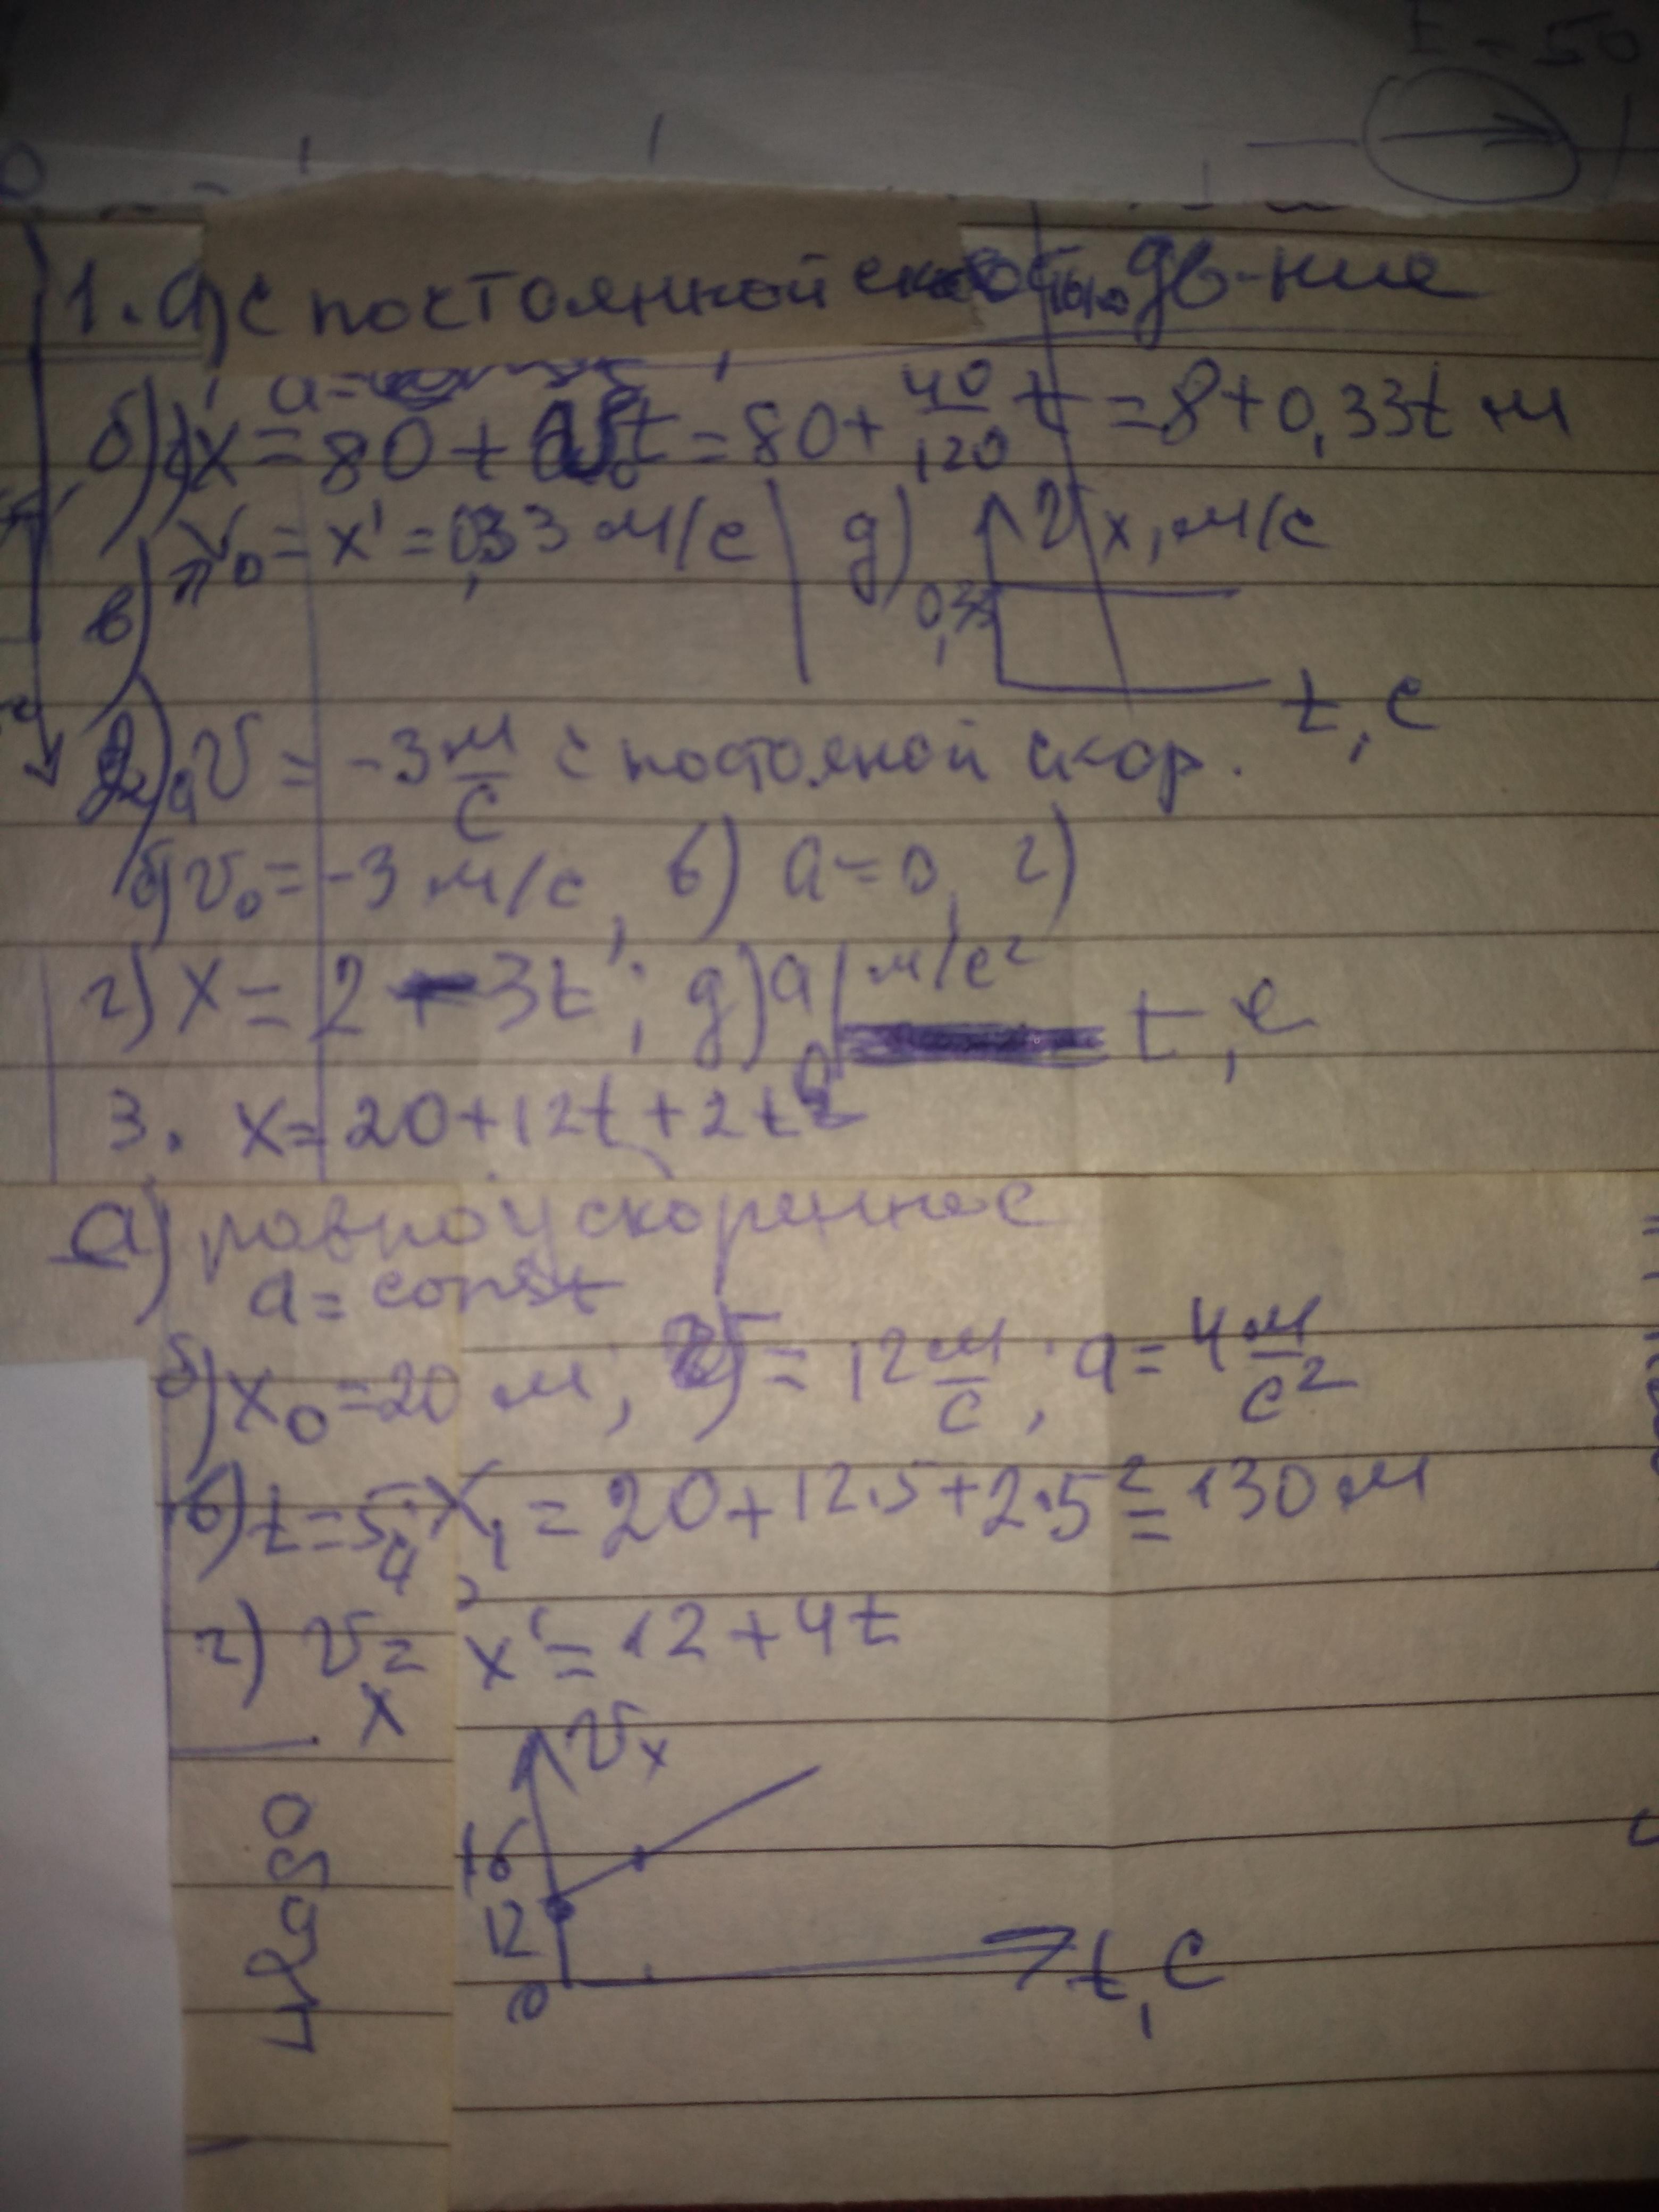 E = 50
1. а) с постоянной скоростью дв-ние
a =
б) x = 80 + t = 80 + 40/120 t = 8 + 0,33t м
v₀ = x' = 0,33 м/с
в)
д) v x, м/с
0,33
t, с
2. а) v = -3 м/с с постояной скор.
б) v₀ = -3 м/с, в) a = 0, г)
г) x = 2 - 3t ; д) a м/с²
0 t, с
3. x = 20 + 12t + 2t²
а) равноускоренное
a = const
б) x₀ = 20 м; v = 12 м/с; a = 4 м/с²
в) t = 5; x₁ = 20 + 12.5 + 2.5² = 130 м
г) vₓ = x' = 12 + 4t
vₓ
16
12
0
t, с